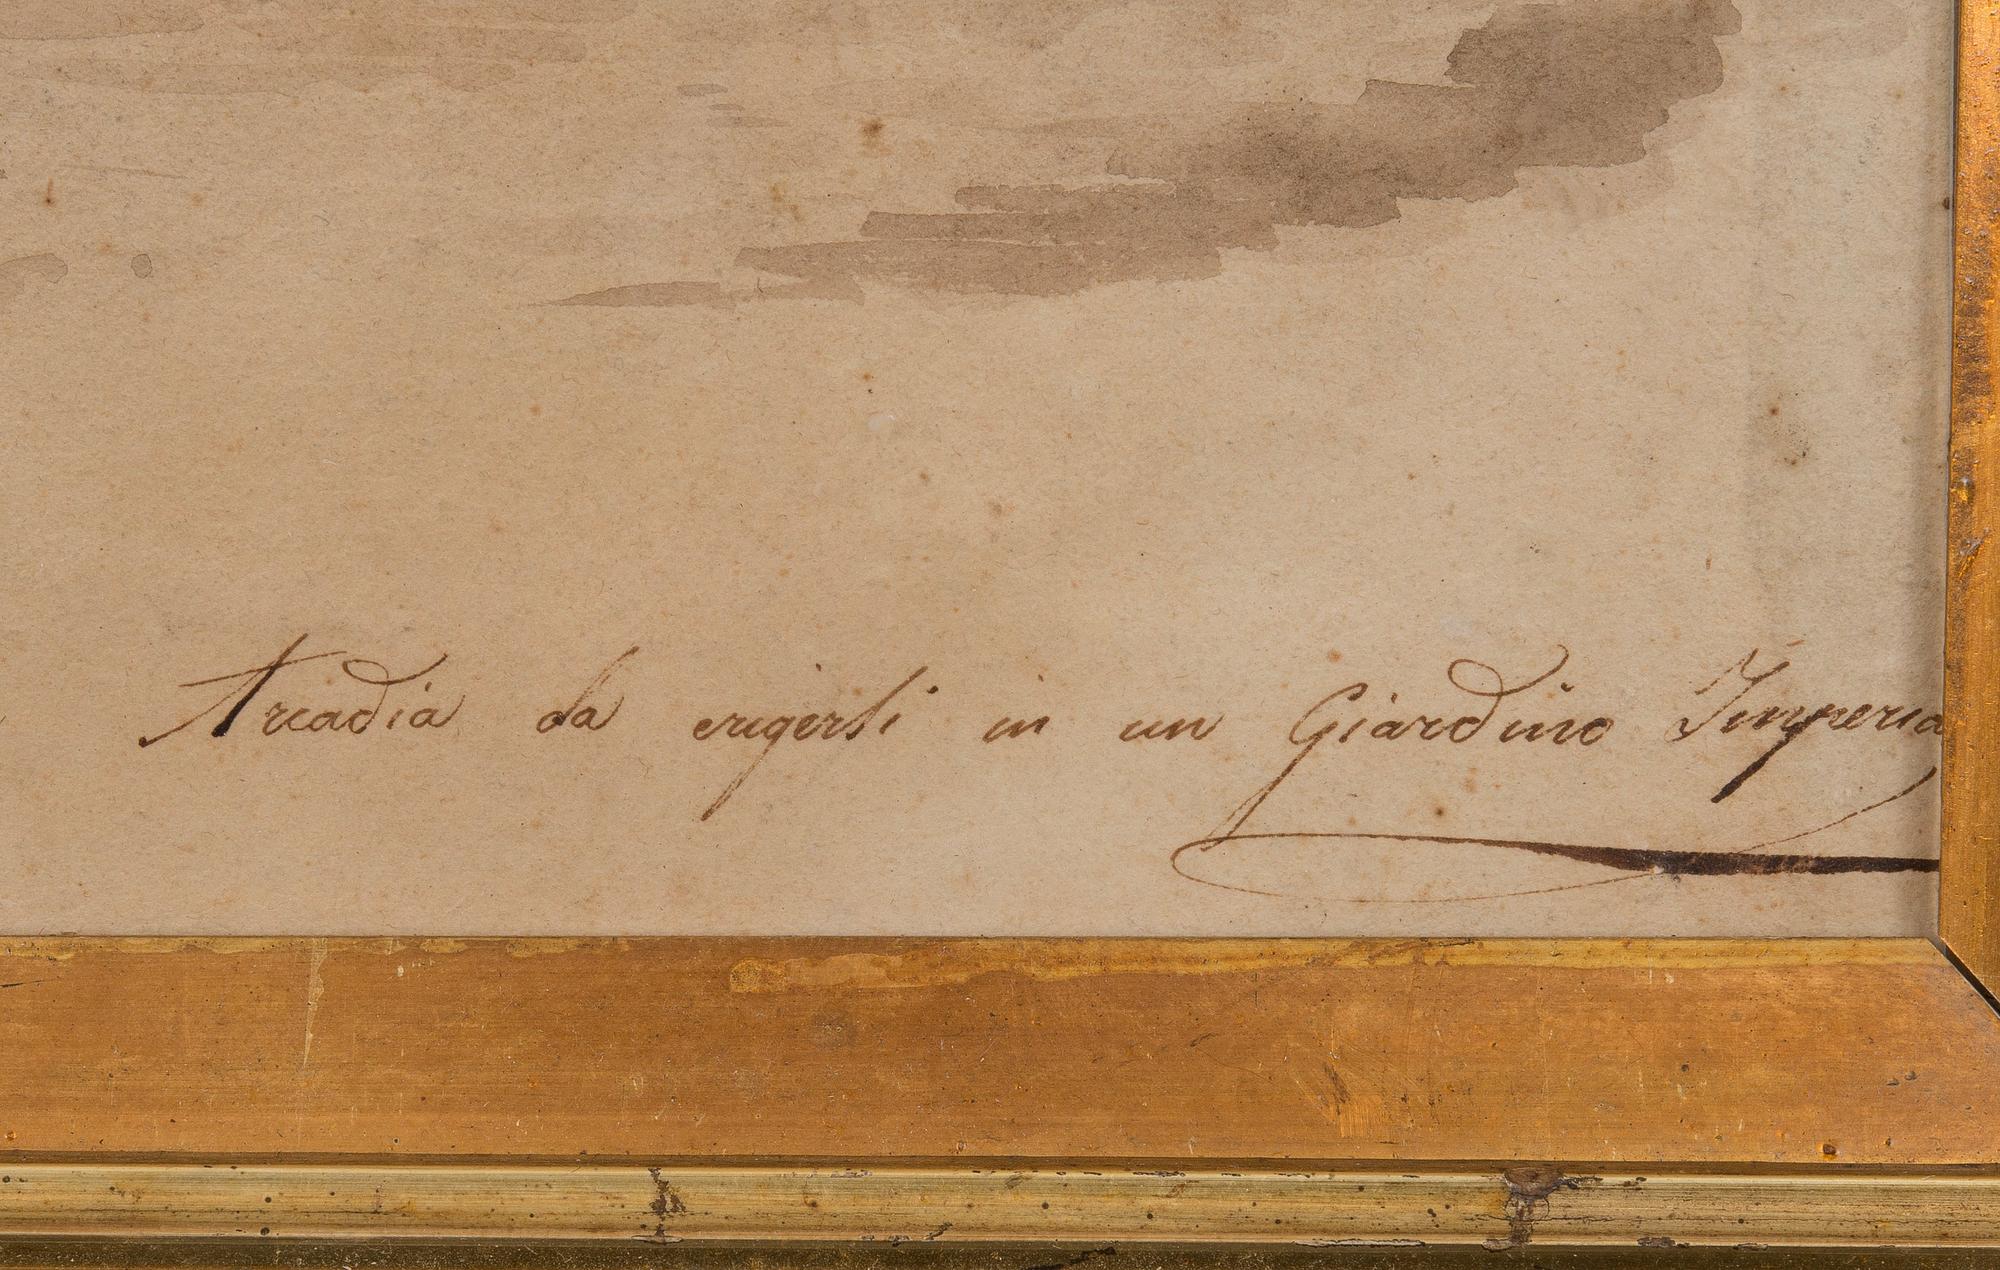 Arcadia da erigersi in un Giardino Imperia